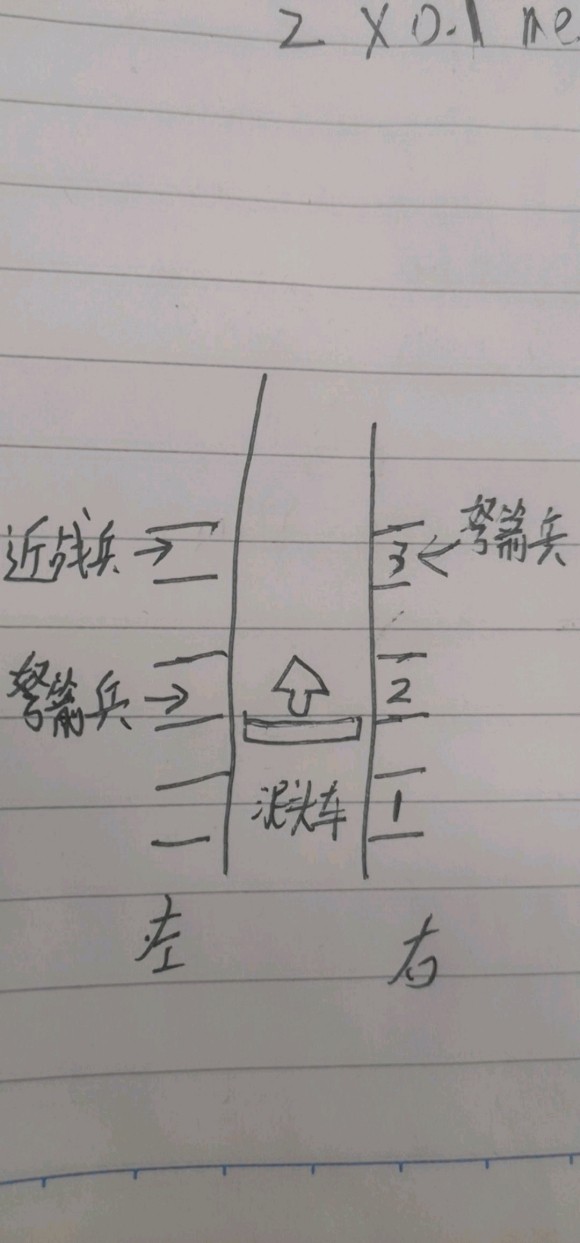 2 × 0.1 me
近战兵 → 3 ← 弩箭兵
弩箭兵 → 2
泥头车 1
左 右